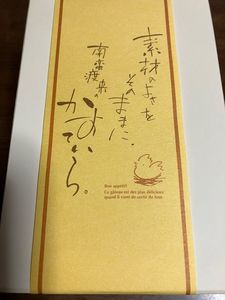 素材のよさを
そのままに、
南蛮渡来の
かすていら。
Bon appétit!
Ce gâteau est des plus délicieux
quand il vient de sortir du four.